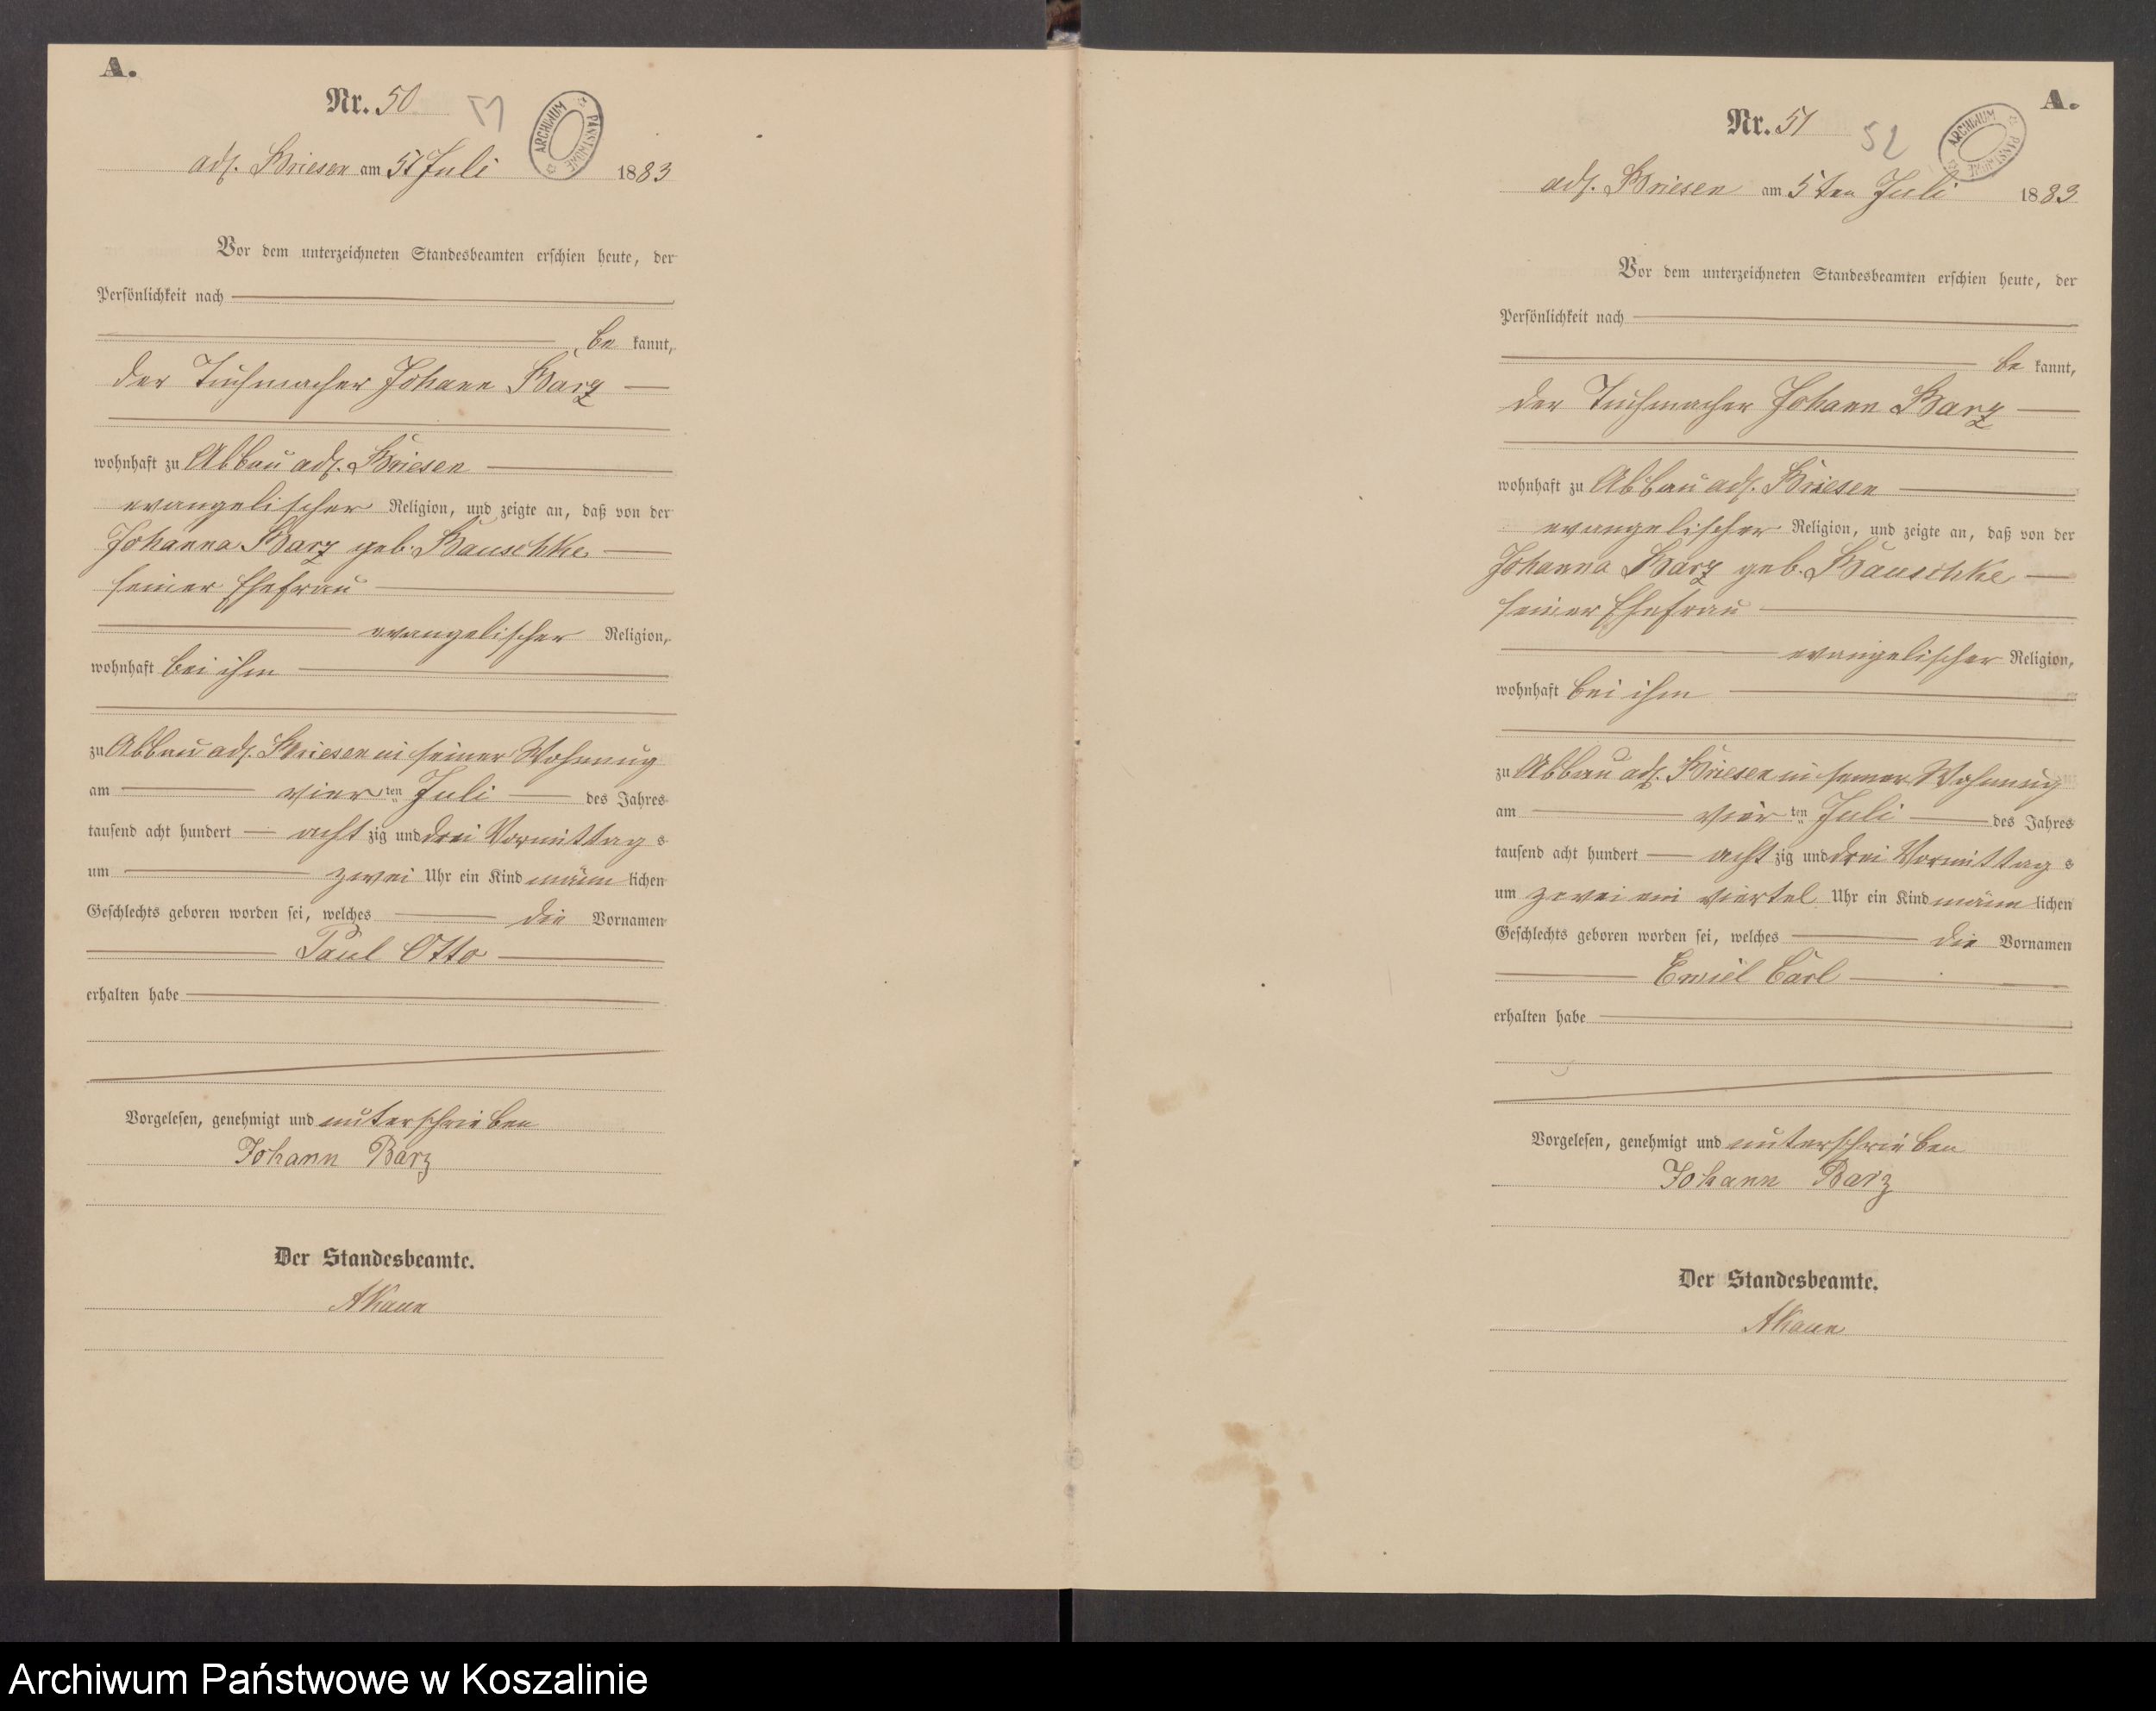 A.
Nr. 50
51
ARCHIWUM PAŃSTWOWE
adl. Briesen am 5t Juli 1883
Vor dem unterzeichneten Standesbeamten erschien heute, der
Persönlichkeit nach
be kannt,
der Tuchmacher Johann Barz
wohnhaft zu Abbau adl. Briesen
evangelischer Religion, und zeigte an, daß von der
Johanna Barz geb. Bauschke
seiner Ehefrau
evangelischer Religion,
wohnhaft bei ihm
zu Abbau adl. Briesen in seiner Wohnung
am vier ten Juli des Jahres
tausend acht hundert acht zig und drei Vormittag s
um zwei Uhr ein Kind männ lichen
Geschlechts geboren worden sei, welches die Vornamen
Paul Otto
erhalten habe
Vorgelesen, genehmigt und unterschrieben
Johann Barz
Der Standesbeamte.
A.
Nr. 51
52
ARCHIWUM PAŃSTWOWE
adl. Briesen am 5ten Juli 1883
Vor dem unterzeichneten Standesbeamten erschien heute, der
Persönlichkeit nach
be kannt,
der Tuchmacher Johann Barz
wohnhaft zu Abbau adl. Briesen
evangelischer Religion, und zeigte an, daß von der
Johanna Barz geb. Bauschke
seiner Ehefrau
evangelischer Religion,
wohnhaft bei ihm
zu Abbau adl. Briesen in seiner Wohnung
am vier ten Juli des Jahres
tausend acht hundert acht zig und drei Vormittag s
um zwei ein viertel Uhr ein Kind männ lichen
Geschlechts geboren worden sei, welches die Vornamen
Emiel Carl
erhalten habe
Vorgelesen, genehmigt und unterschrieben
Johann Barz
Der Standesbeamte.
Archiwum Państwowe w Koszalinie